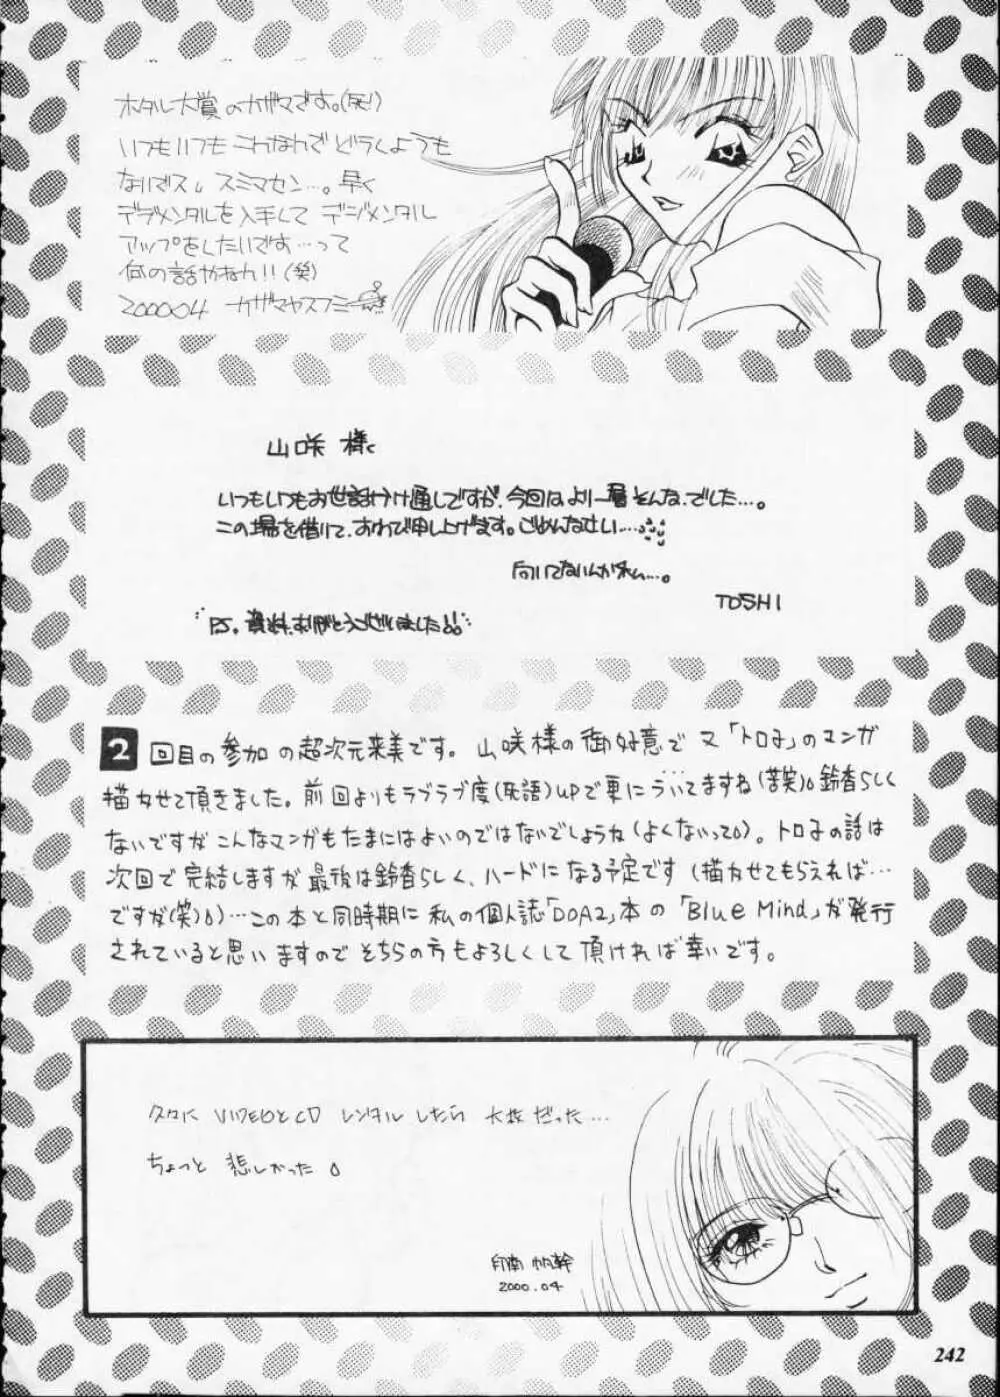 ホタル大賞のカザマです。(死!)
いつもいつもこんなんでどうしようも
ないでス。スミマセン…。早く
デヂメンタルを入手して デジメンタル
アップをしたいです…って
何の話やねん!!(笑)
2000.04 カザマヤスフミ
山咲 様
いつもいつもお世話かけ通しですが、今回はより一層そんな、でした…。
この場を借りて、おわび申し上げます。ごめんなさい…
向いてないんか私…。
TOSHI
PS. 資料、ありがとうございました!!
2回目の参加の超次元来美です。山咲様の御好意で又「トロ子」のマンガ
描かせて頂きました。前回よりもラブラブ度(死語)UPで更にういてますね(苦笑)。鈴香らしく
ないですが こんなマンガもたまにはよいのではないでしょうか(よくないって)。トロ子の話は
次回で完結しますが 最後は鈴香らしく、ハードになる予定です(描かせてもらえれば…
ですが(笑))…この本と同時期に 私の個人誌「DOA2」本の「Blue Mind」が発行
されていると思いますので そちらの方もよろしくして頂ければ幸いです。
久々に VIDEOとCD レンタルしたら 大枚だった…
ちょっと 悲しかった。
印南 帆幹
2000.04
242